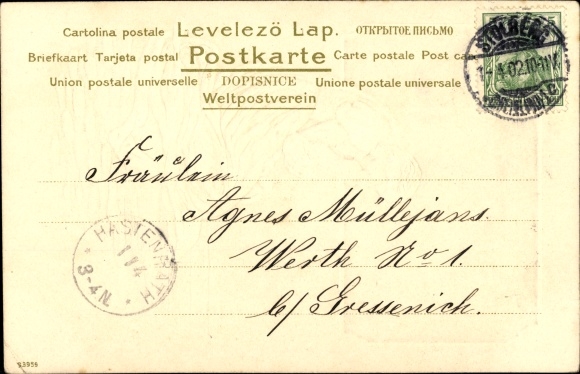 Cartolina postale Levelező Lap. ОТКРЫТОЕ ПИСЬМО
Briefkaart Tarjeta postal Postkarte Carte postale Post car
Union postale universelle DOPISNICE Unione postale universale
Weltpostverein
STOLBERG
4.02.10-11V.
Fräulein
Agnes Müllejans.
Werth No 1.
b/ Gressenich.
HASTENRATH
1 4
3-4N.